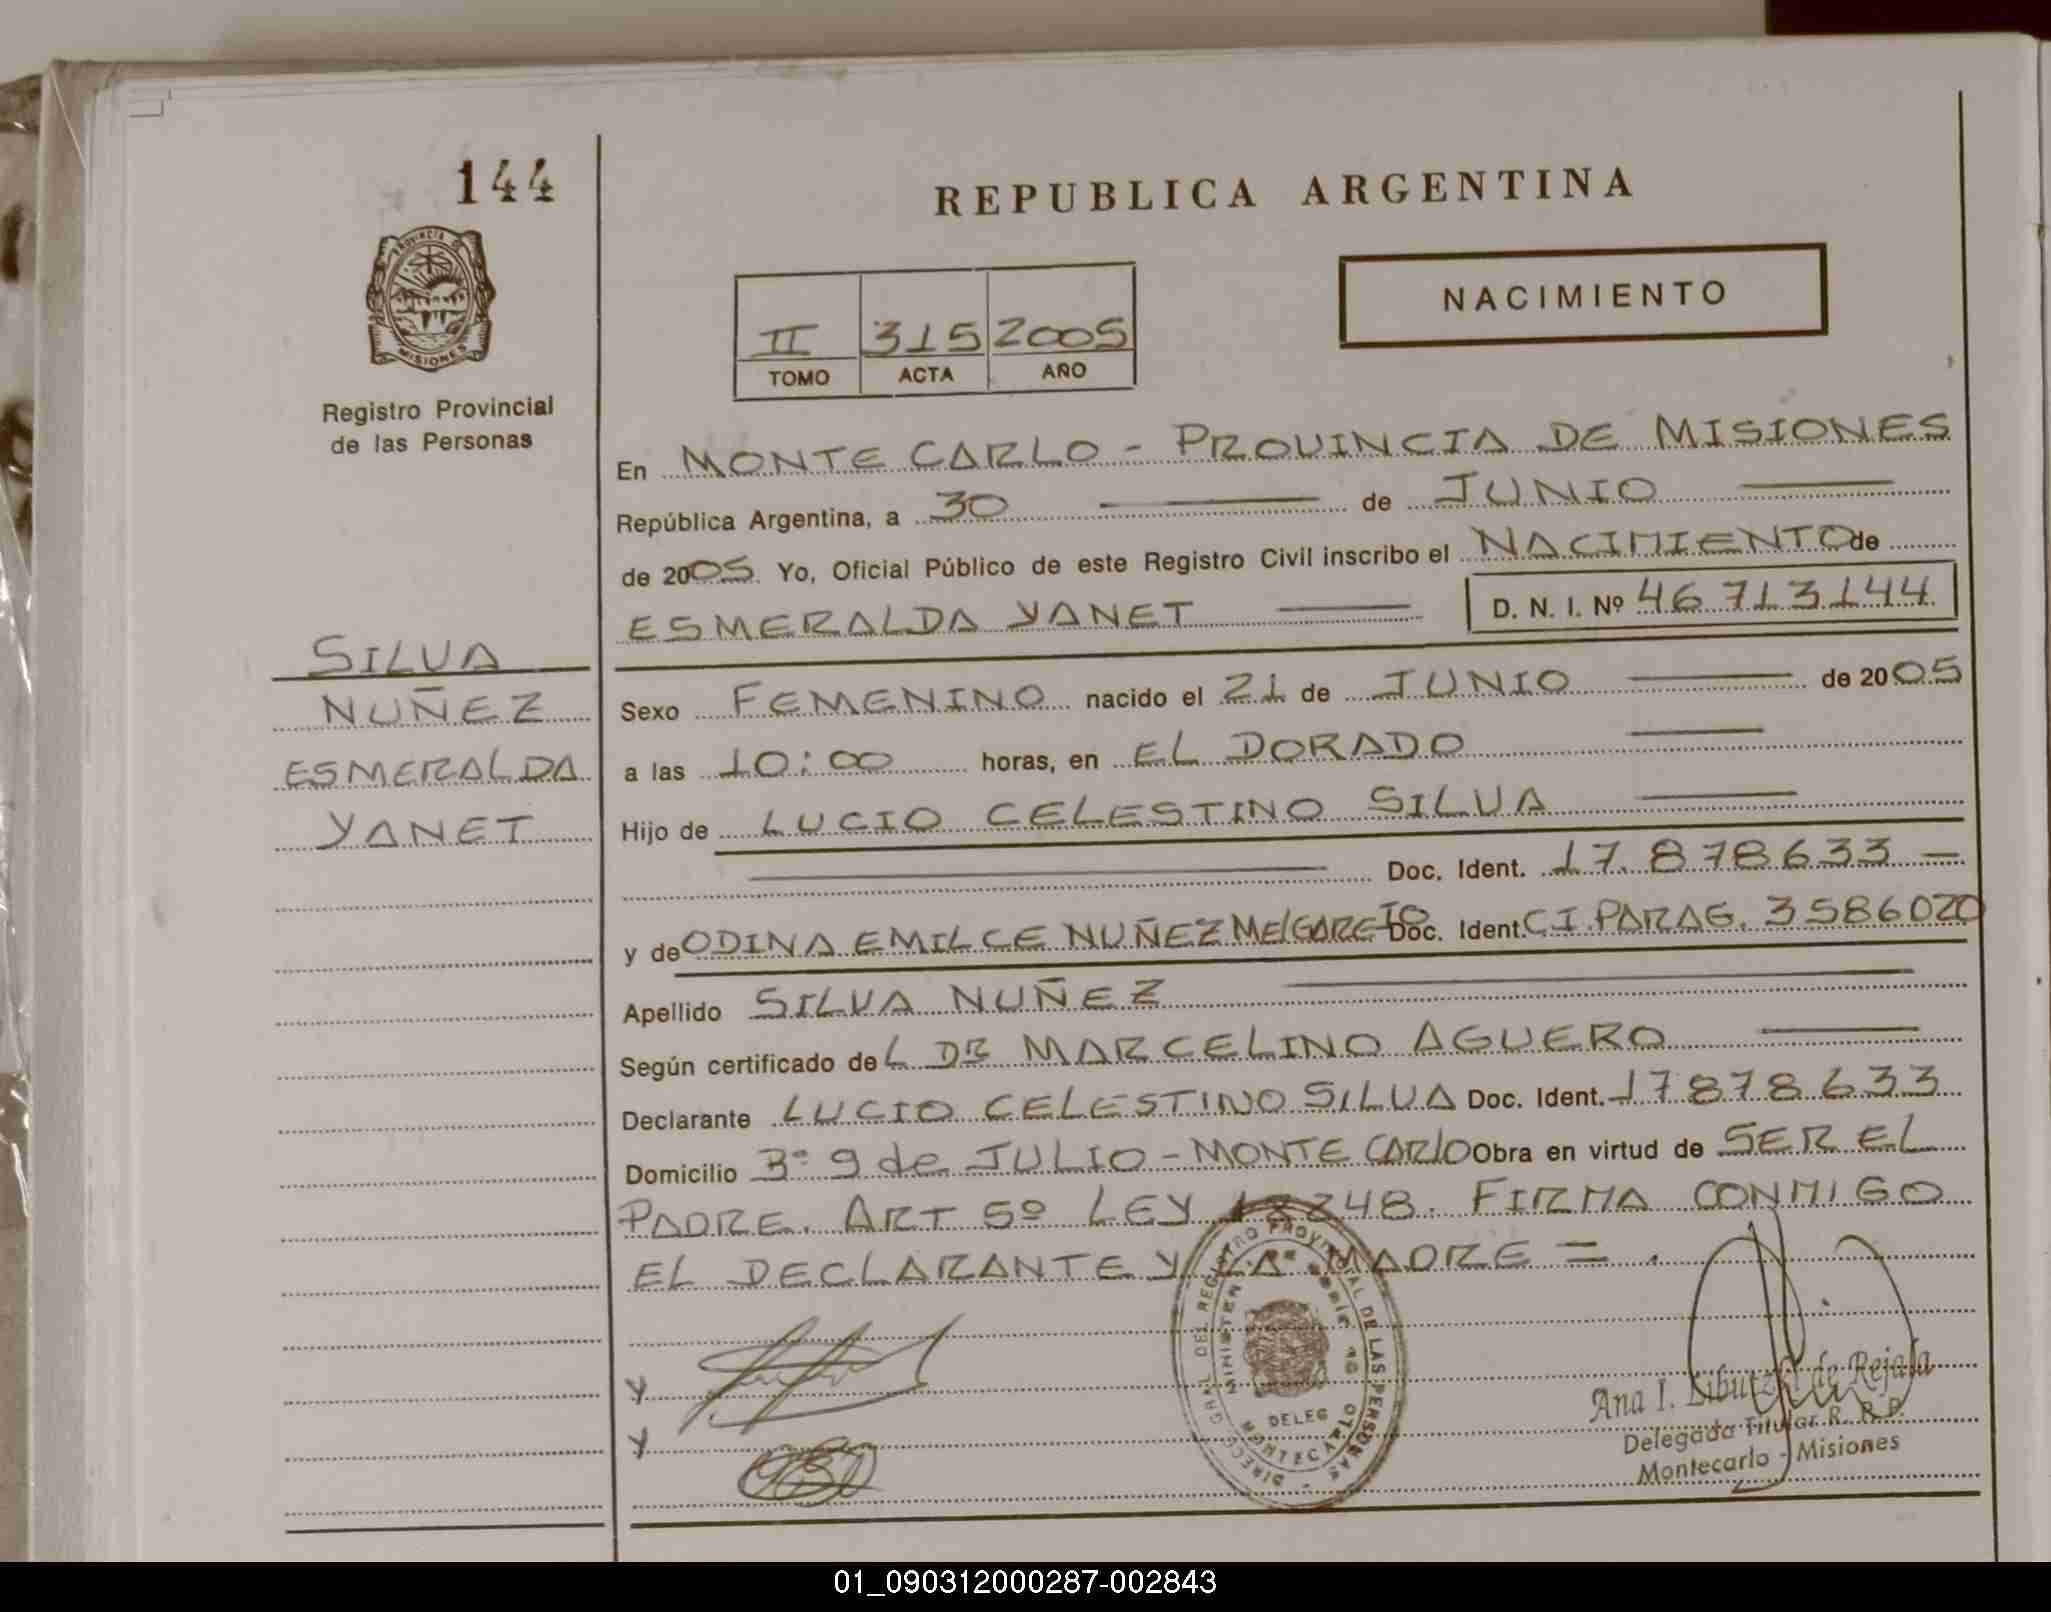 144
REPUBLICA ARGENTINA
NACIMIENTO
PROVINCIA DE
MISIONES
II 315 2005
TOMO ACTA AÑO
Registro Provincial
de las Personas
En MONTE CARLO - PROVINCIA DE MISIONES
República Argentina, a 30 de JUNIO
de 2005. Yo, Oficial Público de este Registro Civil inscribo el NACIMIENTO de
ESMERALDA YANET D. N. I. Nº 46 713144
SILVA
NUÑEZ
ESMERALDA
YANET
Sexo FEMENINO nacido el 21 de JUNIO de 2005
a las 10:00 horas, en EL DORADO
Hijo de LUCIO CELESTINO SILVA
Doc. Ident. 17.878633 —
y de ODINA EMILCE NUÑEZ MElGAREJO Doc. Ident. C I. PARAG. 3586020
Apellido SILVA NUÑEZ
Según certificado deL DR MARCELINO AGUERO
Declarante LUCIO CELESTINO SILVA Doc. Ident. 17878633
Domicilio Bº 9 de JULIO - MONTE CARlO Obra en virtud de SER EL
PADRE. ART 5º LEY 18248. FIRMA CONMIGO
EL DECLARANTE Y LA MADRE = .
DIRECC. GRAL DEL REGISTRO PROVINCIAL DE LAS PERSONAS
DELEG
MONTECARLO
Ana I. de Rejala
Delegada Titular R. R. P.
Montecarlo - Misiones
01_090312000287-002843